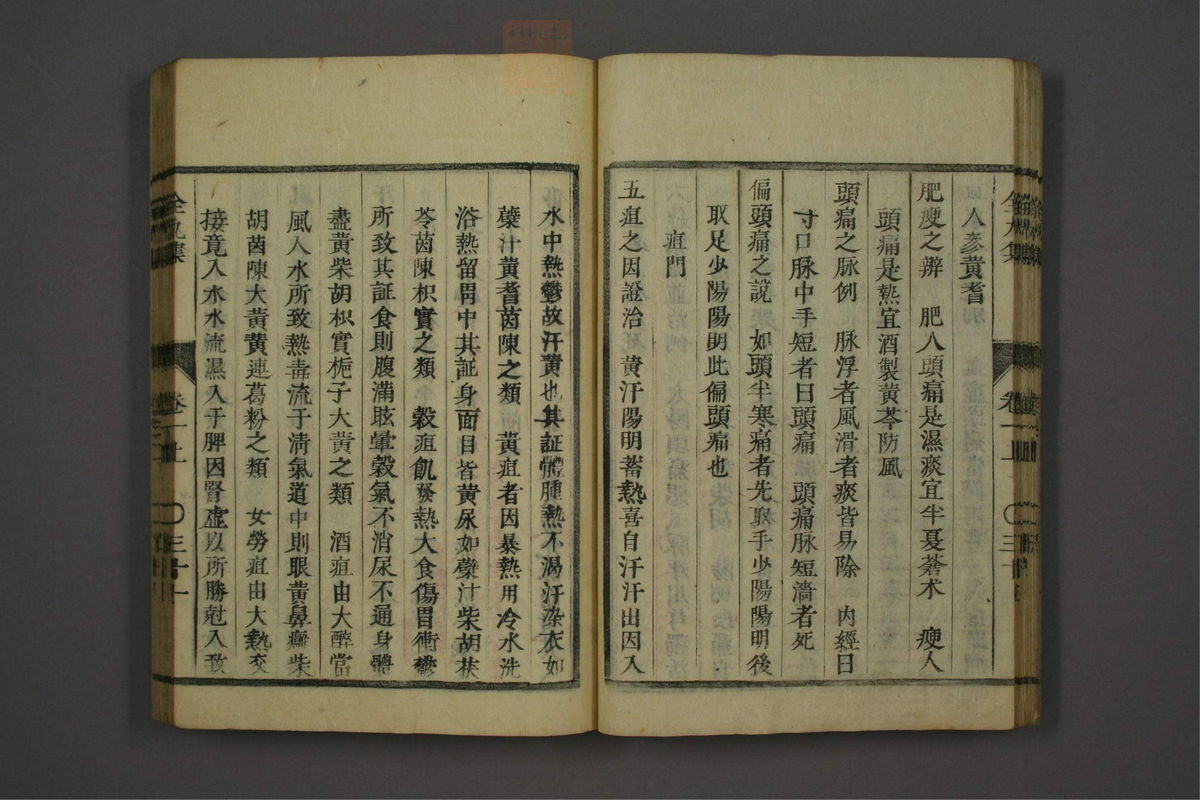 人參黃耆
肥瘦之辨　肥人頭痛是濕痰宜半夏蒼术　瘦人
頭痛是熱宜酒製黃芩防風
頭痛之脉例　脉浮者風滑者痰皆易除　內經曰
寸口脉中手短者曰頭痛　頭痛脉短濇者死
偏頭痛之說　如頭半寒痛者先取手少陽陽明後
取足少陽陽明此偏頭痛也
疸門
五疸之因證治　黃汗陽明蓄熱喜自汗汗出因入
水中熱鬱故汗黃也其証體腫熱不渴汗染衣如
蘗汁黃耆茵陳之類　黃疸者因暴熱用冷水洗
浴熱留胃中其証身面目皆黃尿如蘗汁柴胡茯
苓茵陳枳實之類　穀疸飢發熱大食傷胃衝鬱
所致其証食則腹滿眩暈穀氣不消尿不通身體
盡黃柴胡枳實梔子大黃之類　酒疸由大醉當
風入水所致熱毒流于清氣道中則眼黃鼻癰柴
胡茵陳大黃黃連葛粉之類　女勞疸由大熱交
接竟入水水流濕入于脾因腎虛以所勝尅入致
全九集
卷一上
〇三十一